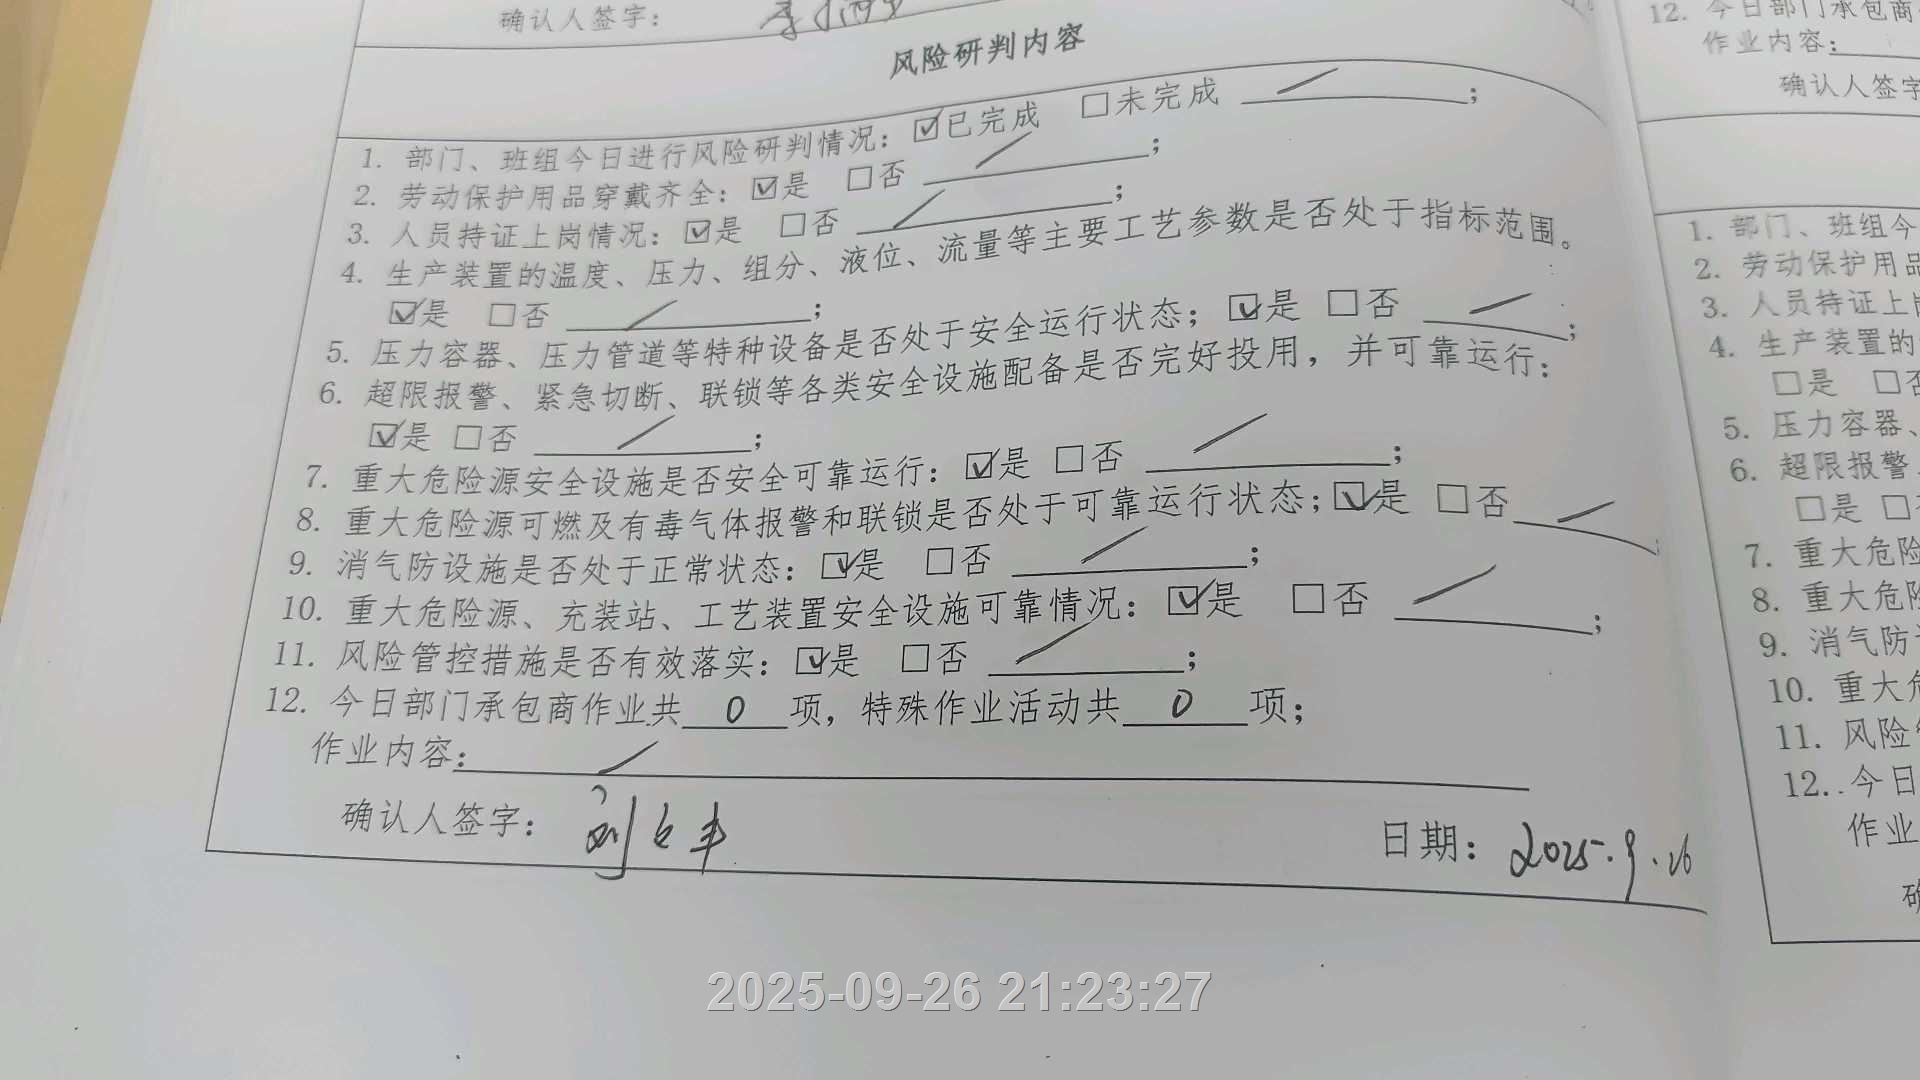 确认人签字：
风险研判内容
1. 部门、班组今日进行风险研判情况：☑已完成 □未完成 ／ ；
2. 劳动保护用品穿戴齐全：☑是 □否 ／ ；
3. 人员持证上岗情况：☑是 □否 ／ ；
4. 生产装置的温度、压力、组分、液位、流量等主要工艺参数是否处于指标范围。
☑是 □否 ／ ；
5. 压力容器、压力管道等特种设备是否处于安全运行状态；☑是 □否 ／ ；
6. 超限报警、紧急切断、联锁等各类安全设施配备是否完好投用，并可靠运行：
☑是 □否 ／ ；
7. 重大危险源安全设施是否安全可靠运行：☑是 □否 ／ ；
8. 重大危险源可燃及有毒气体报警和联锁是否处于可靠运行状态；☑是 □否 ／ ；
9. 消气防设施是否处于正常状态：☑是 □否 ／ ；
10. 重大危险源、充装站、工艺装置安全设施可靠情况：☑是 □否 ／ ；
11. 风险管控措施是否有效落实：☑是 □否 ／ ；
12. 今日部门承包商作业共 0 项，特殊作业活动共 0 项；
作业内容： ／
确认人签字： 刘
日期：2025.9.26
12. 今日部门承包商
作业内容：
确认人签字
1. 部门、班组今
2. 劳动保护用品
3. 人员持证上
4. 生产装置的
□是 □否
5. 压力容器、
6. 超限报警
□是 □
7. 重大危险
8. 重大危
9. 消气防
10. 重大
11. 风险
12. 今日
作业
2025-09-26 21:23:27